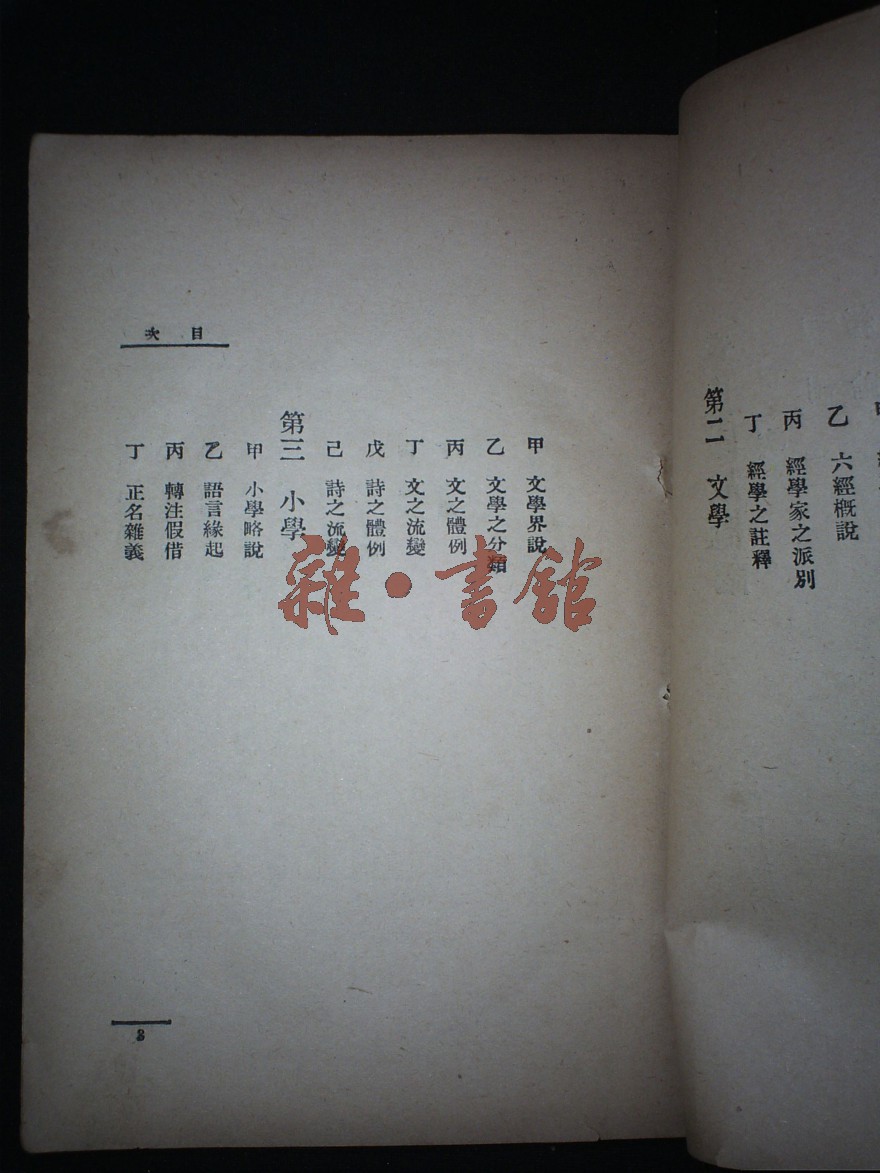 乙 六經概說
丙 經學家之派別
丁 經學之註釋
第二 文學
目次
甲 文學界說
乙 文學之分類
丙 文之體例
丁 文之流變
戊 詩之體例
己 詩之流變
第三 小學
甲 小學略說
乙 語言緣起
丙 轉注假借
丁 正名雜義
雜·書館